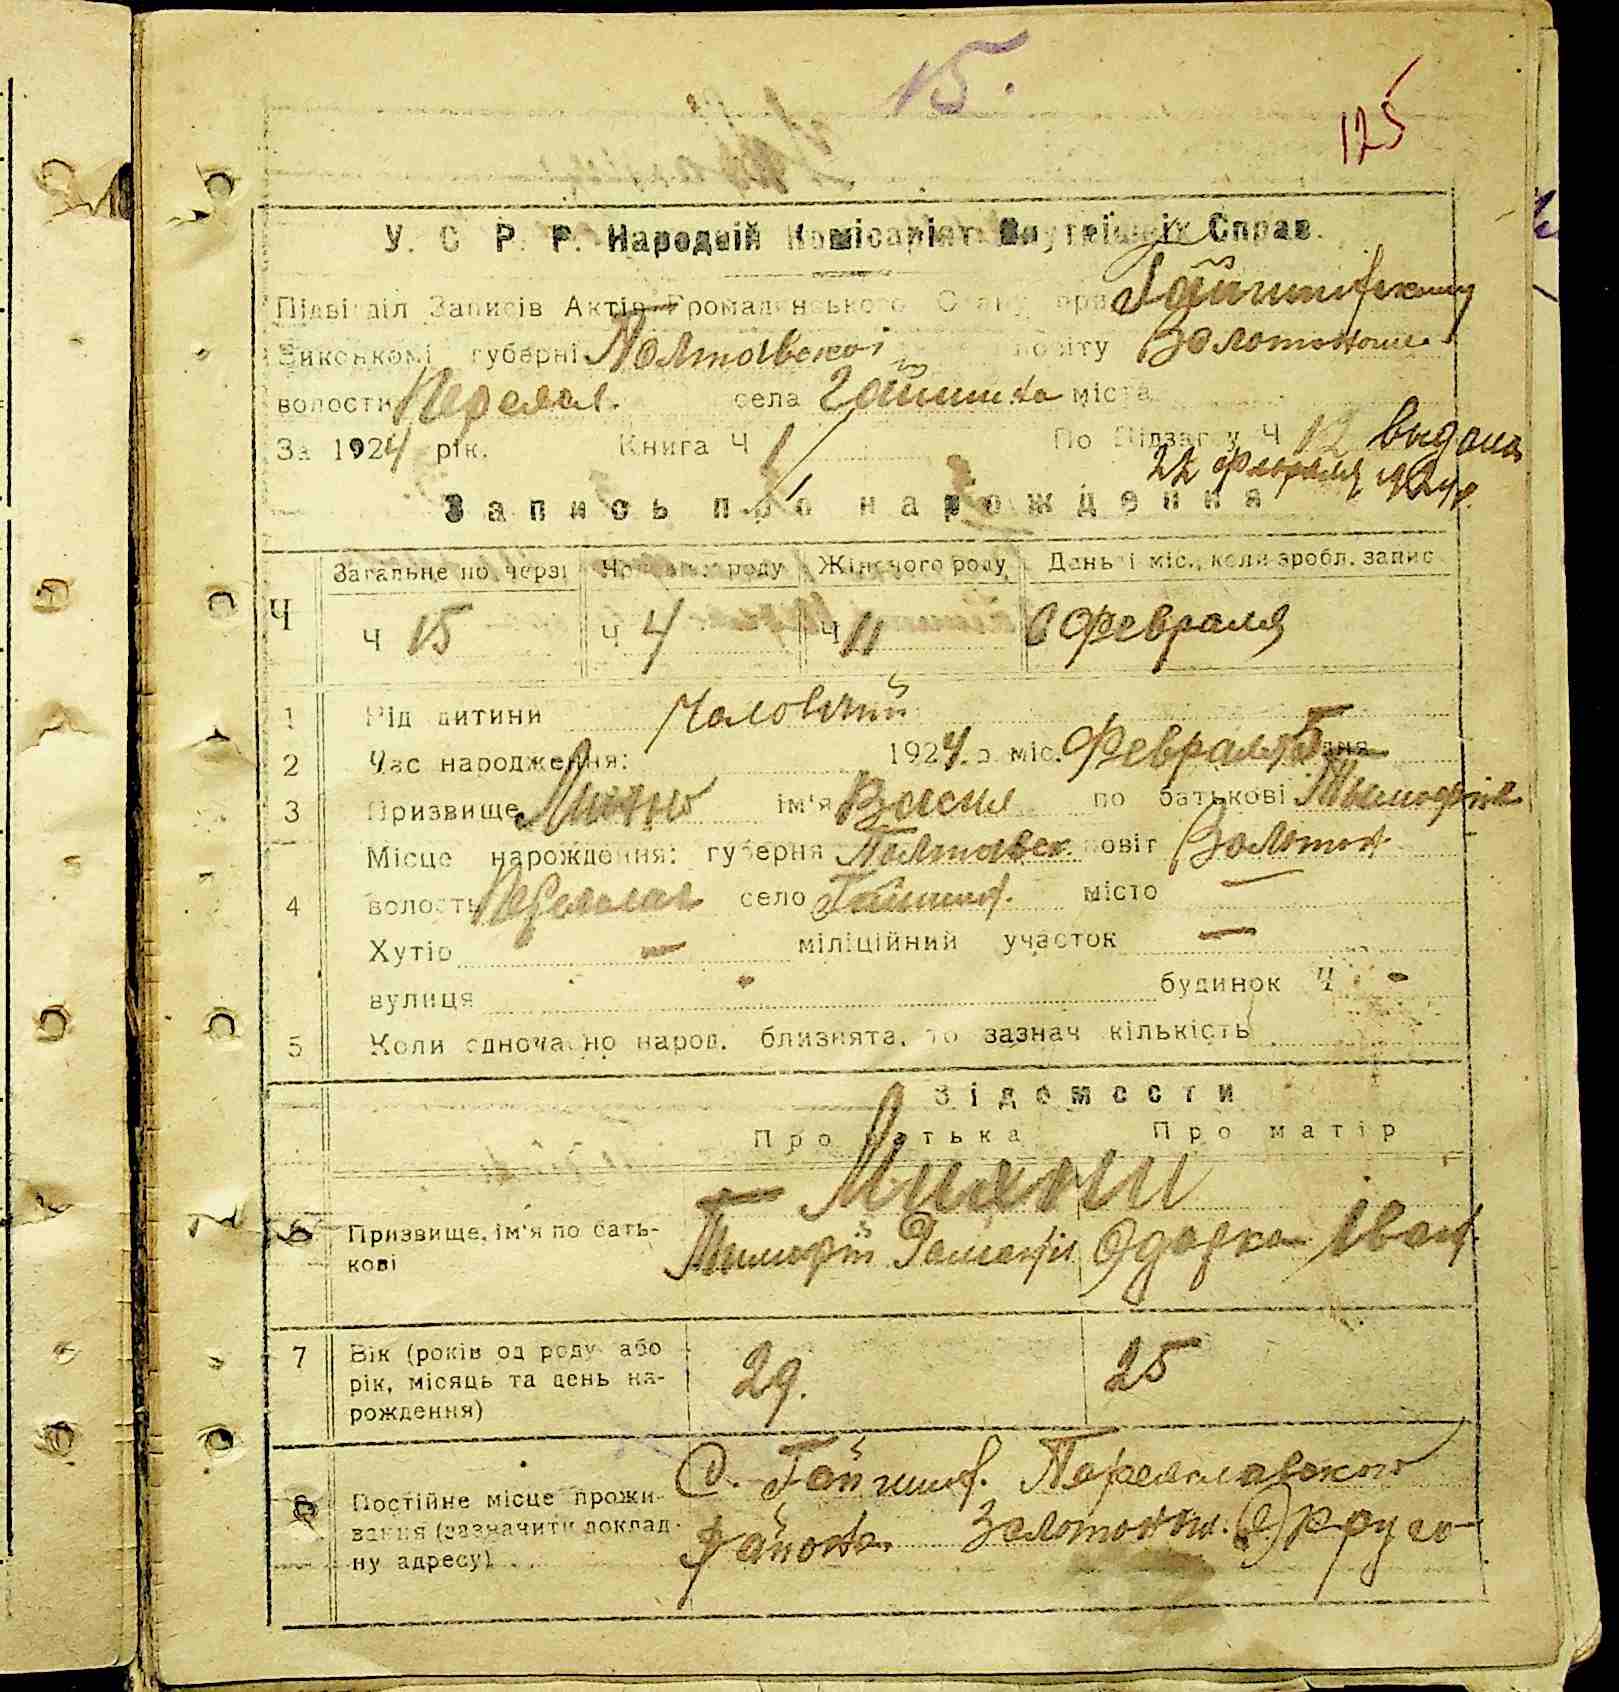 15.
125
У. С. Р. Р. Народній Комісаріят Внутрішніх Справ.
Підвідділ Записів Актів Громадянського Стану при Гайшинському
Виконкомі губерні Полтавскоі повіту Золотонош.
волости Переясл. села Гайшина міста
За 1924 рік. Книга Ч 1 По Підзагу Ч 12 выдана
22 февраля 1924 р.
Запись про народження
Загальне по черзі Чоловіч. роду Жіночого роду День і міс., коли зробл. запис
Ч Ч 15 Ч 4 Ч 11 6 Февраля
1 Рід дитини Чаловичий
2 Час народження: 1924 р. міс. Февраля 5 дня
3 Призвище ім'я Васил по батькові Тымофіев
Місце народження: губерня Полтавск. повіт Золотон
4 волость Переяслав село Гайшин. місто —
Хутір — міліційний участок —
вулиця - будинок Ч -
5 Коли одночасно народ. близнята, то зазнач кількість
Відомости
Про батька Про матір
6 Призвище, ім'я по бать-
кові
Тимофій Одарка Іван.
7 Вік (років од роду або
рік, місяць та день на-
рождення)
29. 25
8 Постійне місце прожи-
вання (зазначити доклад-
ну адресу)
С. Гайшин. Переяславского
Района Золотонош. Округо-